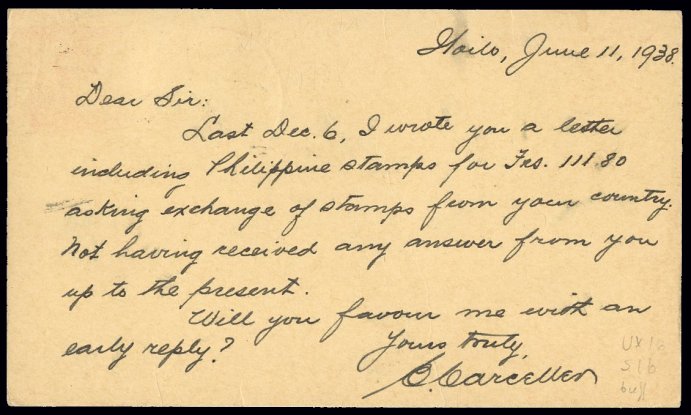 Iloilo, June 11, 1938.
Dear Sir:
Last Dec. 6, I wrote you a letter
including Philippine stamps for Frs. 111 80
asking exchange of stamps from your country.
Not having received any answer from you
up to the present.
Will you favour me with an
early reply?
Yours truly,
C. Carceller
UX16
S16
buff